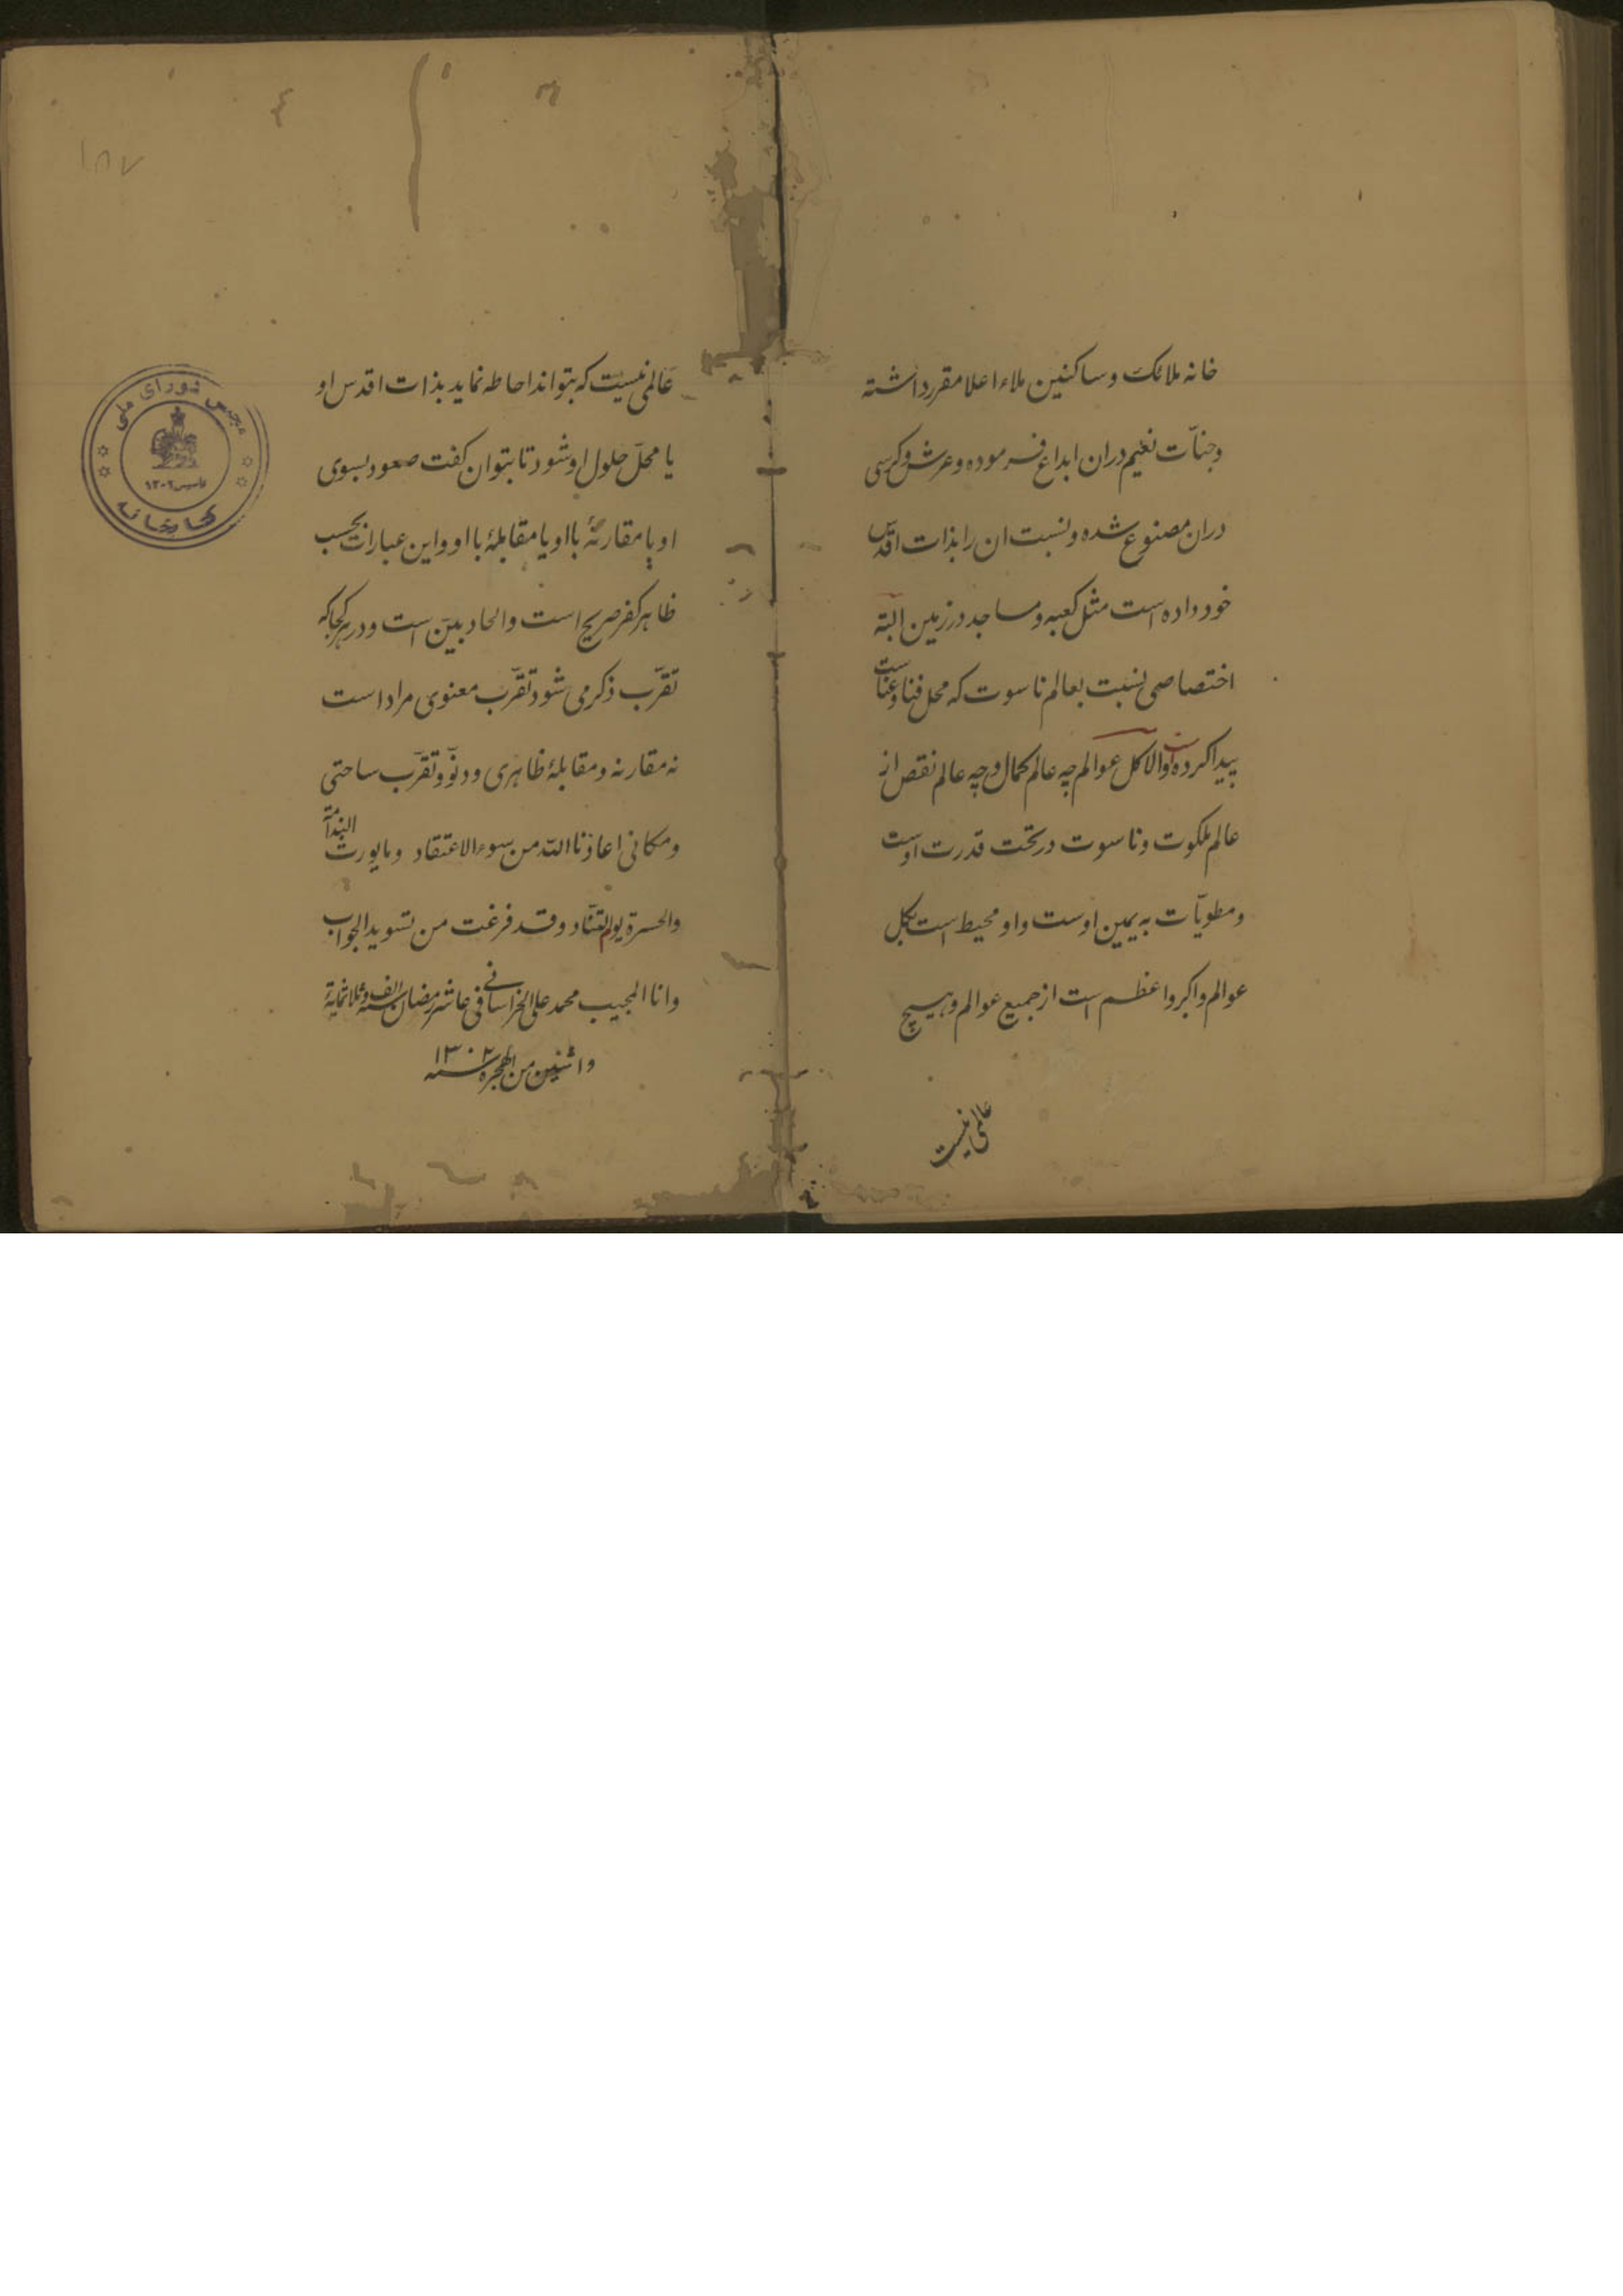 خانه ملائک وساکنین ملاء اعلا مقرر داشته
وجنّات نعیم دران ابداع فرموده وعرش وکرسی
دران مصنوع شده ونسبت ان را بذات اقدس
خود داده است مثل کعبه ومساجد در زمین البتّه
اختصاصی نسبت بعالم ناسوت که محل فنا وعناست
پیدا کرده است والا کل عوالم چه عالم کمال وچه عالم نقص از
عالم ملکوت وناسوت در تحت قدرت اوست
ومطویّات به یمین اوست واو محیط است بکل
عوالم واکبر واعظم است از جمیع عوالم وهیچ
عالمی نیست
عالمی نیست که بتواند احاطه نماید بذات اقدس او
یا محلّ حلول او شود تا بتوان گفت صعود بسوی
او یا مقارنهٔ با او یا مقابلهٔ با او واین عبارات بحسب
ظاهر کفر صریح است والحاد بیّن است ودر هر کجا که
تقرّب ذکر می شود تقرّب معنوی مراد است
نه مقارنه ومقابلهٔ ظاهری ودنوّ وتقرّب ساحتی
ومکانی اعاذنا الله من سوء الاعتقاد وما یورث الندامة
والحسرة یوم التّناد وقد فرغت من تسوید الجواب
وانا المجیب محمد علی الخراسانی فی عاشر رمضان سنة الف وثلاثمایة
واثنین من الهجره سنه ۱۳۰۲
۱۸۷
مجلس شورای ملی
تاسیس ۱۳۰۲
کتابخانه